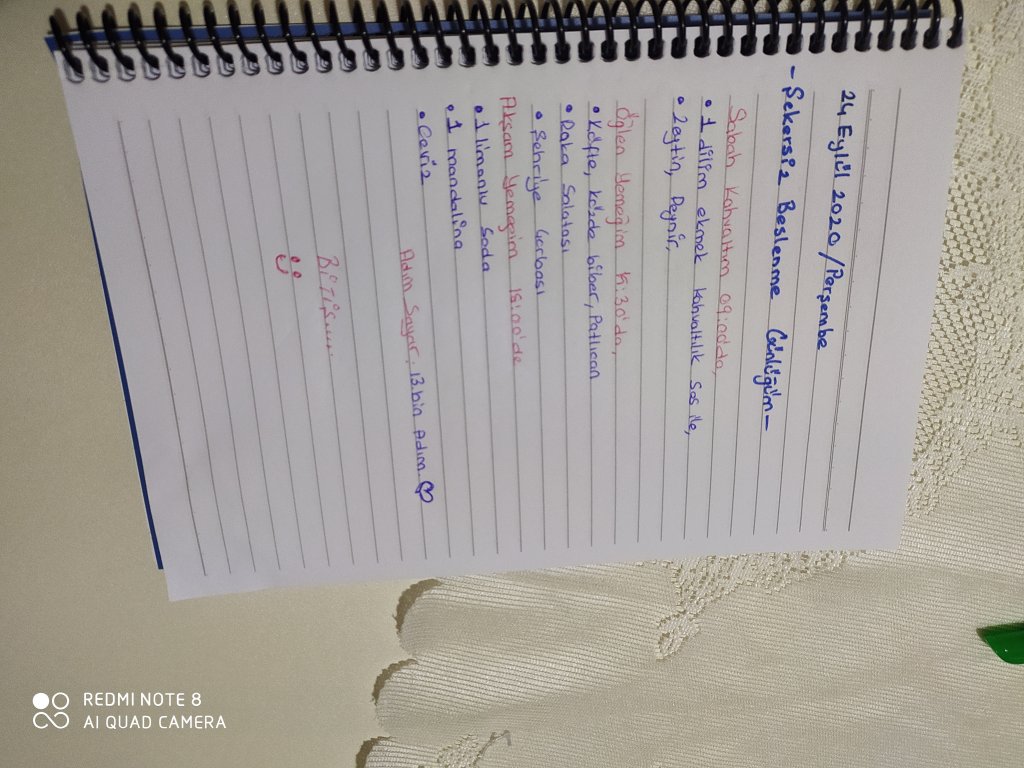 24 Eylül 2020/Perşembe
- Şekersiz Beslenme Günlüğüm -
Sabah Kahvaltım 09:00'da,
• 1 dilim ekmek kahvaltılık sos ile,
• Zeytin, Peynir,
Öğlen Yemeğim 15:30'da,
• Köfte, közde biber, Patlıcan
• Roka Salatası
• Şehriye Çorbası
Akşam Yemeğim 18:00'de
• 1 limonlu soda
• 1 mandalina
• Ceviz
Adım Sayar: 13 bin Adım ♡
BiTiş.....
REDMI NOTE 8
AI QUAD CAMERA